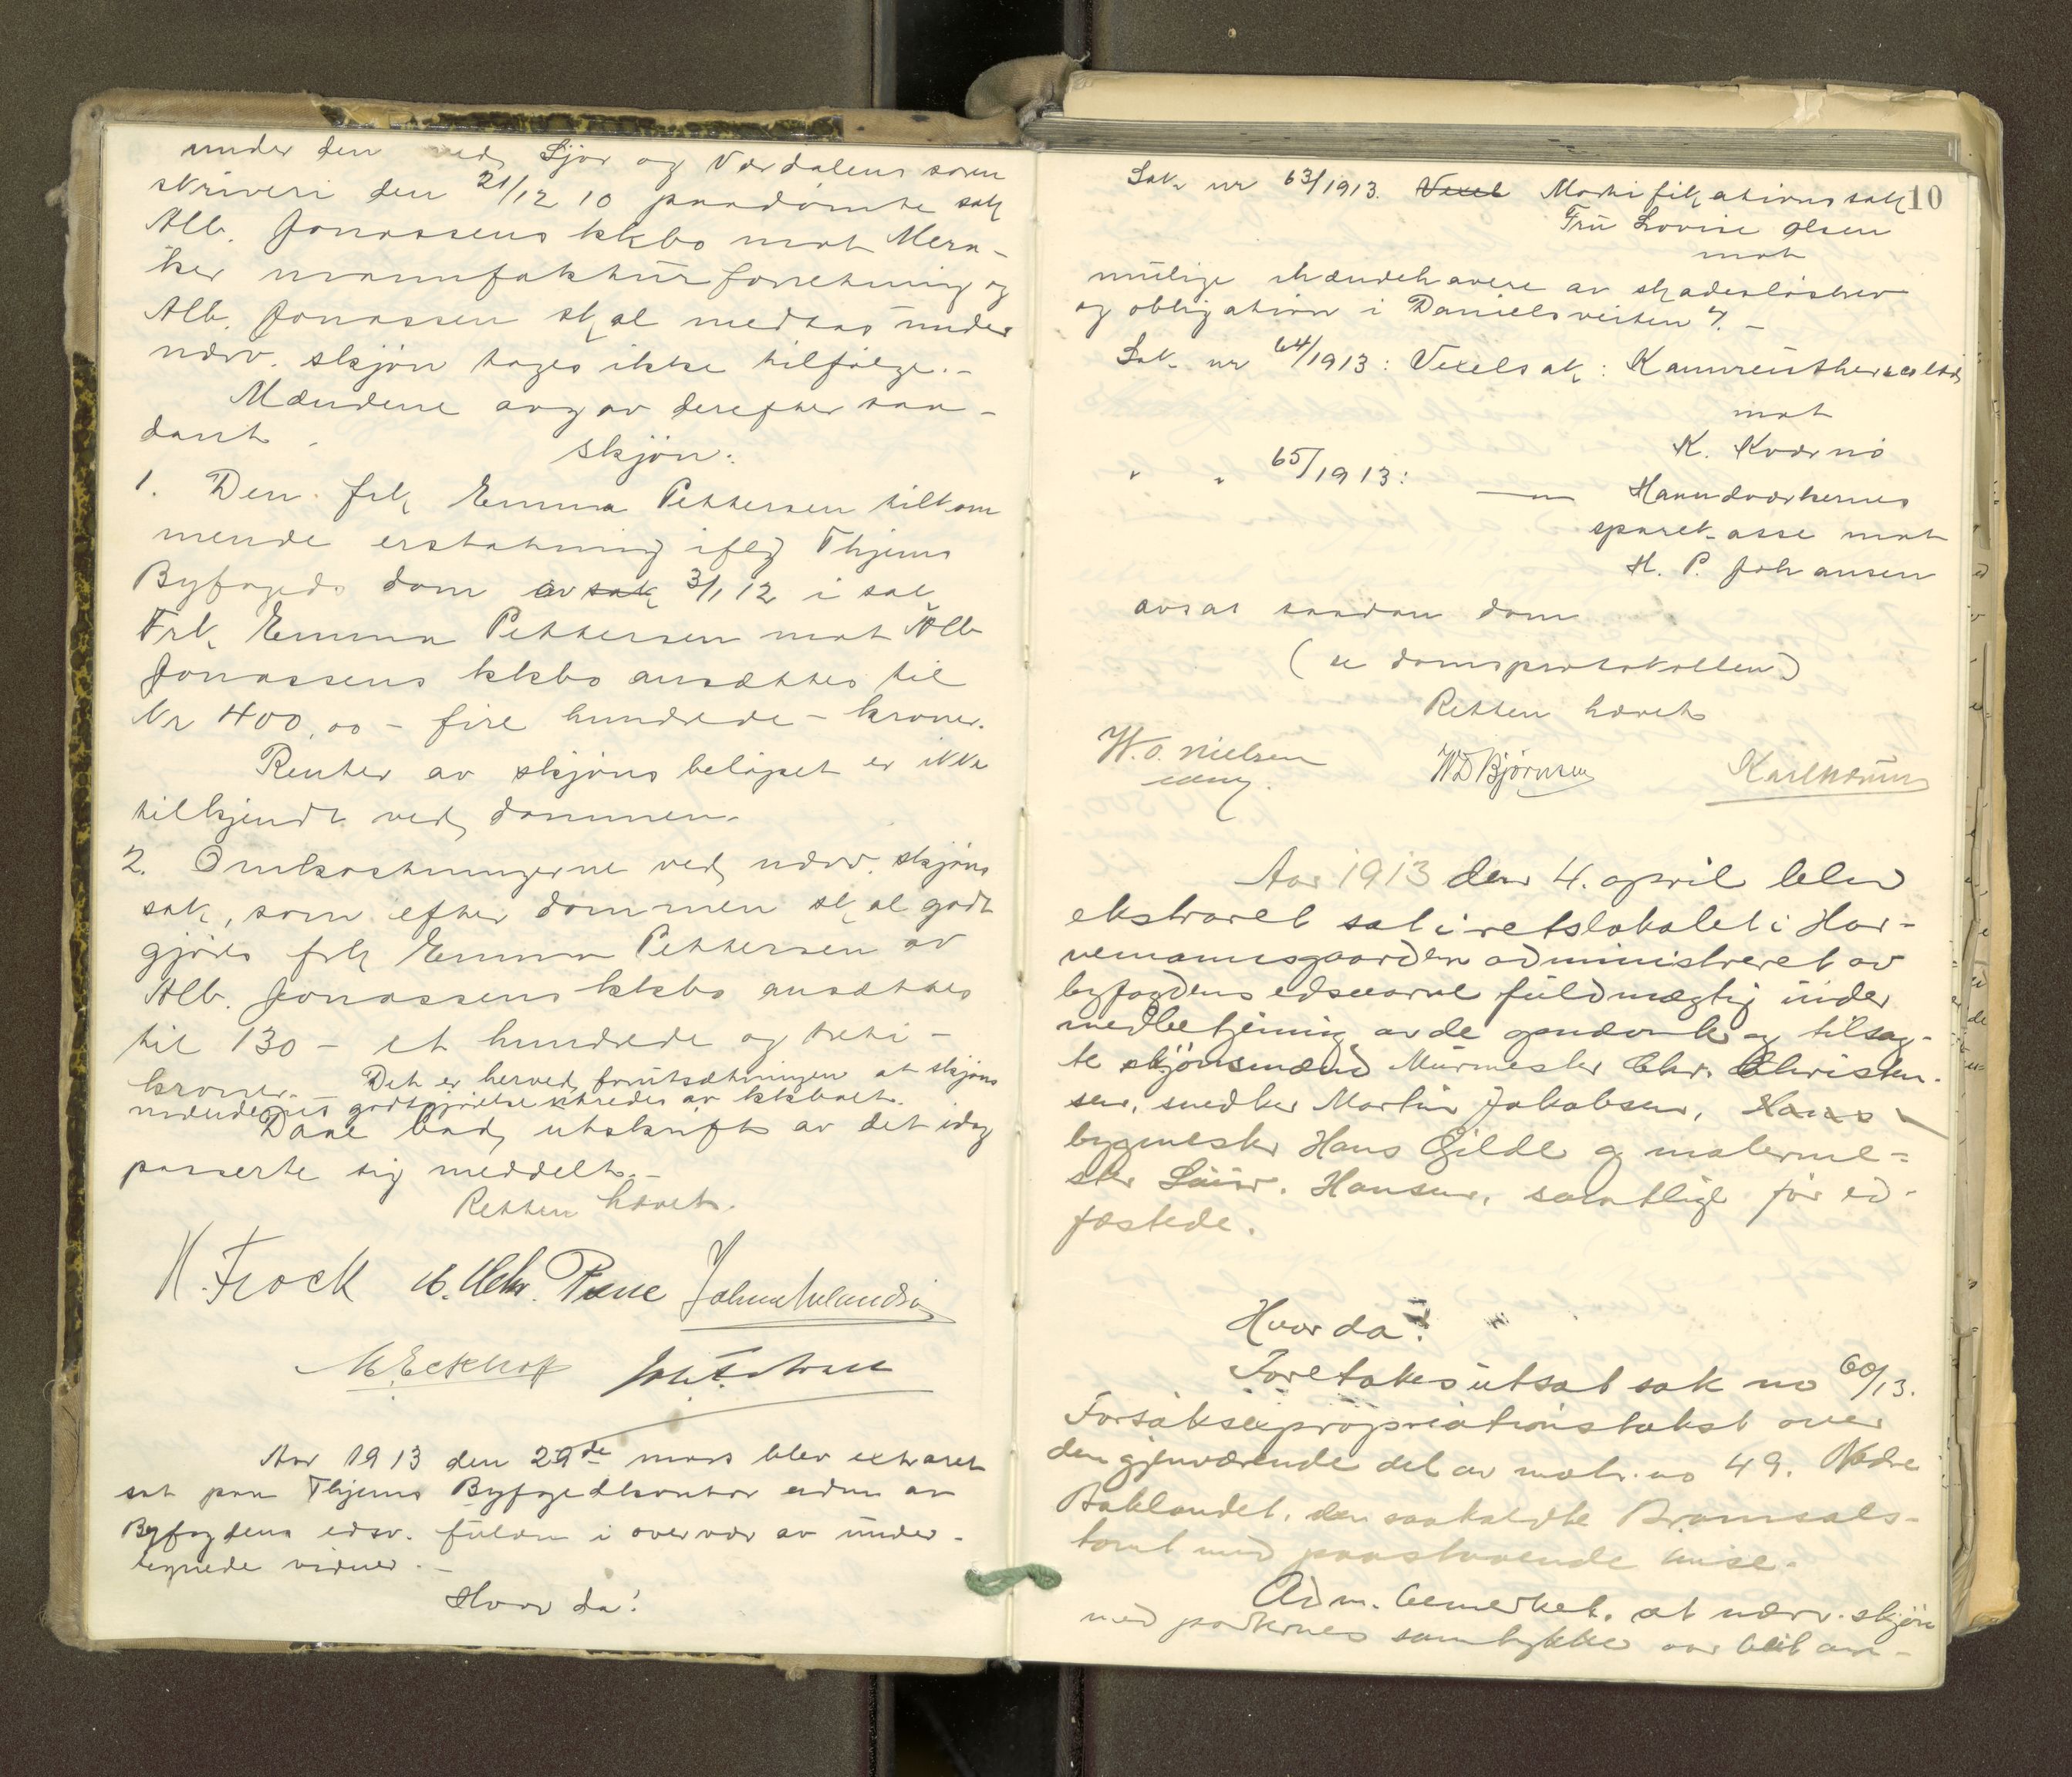 under den ved Stjør og Værdalens soren
skriveri den 21/12 10 paadømte sak
Alb. Jonassens kkbo mot Mera-
ker manufakturforretning og
Alb. Jonassen skal medtas under
nærv. skjøn tages ikke tilfølge.-
Mændene avgav derefter saa-
dant
skjøn:
1. Den frk Emma Pettersen tilkom
mende erstatning iflg Thjems
Byfogeds dom av sak 3/1 12 i sak
Frk Emma Pettersen mot Alb
Jonassens kkbo ansættes til
Kr 400,00 - fire hundrede - kroner.
Renter av skjøns beløpet er ikke
tilkjendt ved dommen.
2. Omkostningerne ved nærv. skjøns
sak, som efter dommen skal godt
gjøres frk Emma Pettersen av
Alb. Jonassens kkbo ansættes
til 130 - et hundrede og treti -
kroner. - Det er herved forutsætningen at skjøns
mændenes godtgjørelse utredes av kkboet.
Daae bad utskrift av det idag
passerte sig meddelt.-
Retten hævet.
K. Frock
M. Eckhof
Aar 1913 den 29de mars blev extraret
sat paa Thjems Byfogedkontor adm av
Byfogdens edsv. fuldm i overvær av under-
tegnede vidner.-
Hvor da!
10
Sak nr 63/1913. Vexel Mortifikationssak
Fru Lovise Olsen
mot
mulige ihændehavere av skadesløsbrev
og obligation i Danielsveiten 7.-
Sak nr 64/1913: Vexelsak:
mot
K. Kværnø
" " 65/1913: — Haandværkernes
sparekasse mot
H. P. Johansen
avsas saadan dom
(se domsprotokollen)
Retten hævet
W. O. Nielsen
W D Bjørnsen
Aar 1913 den 4. april blev
ekstraret sat i retslokalet i Hor-
nemannsgaarden administreret av
byfogdens edsvorne fuldmægtig under
medbetjening av de opnævnte og tilsag-
te skjønsmænd Murmester Chr. Christen-
sen, snedker Martin Jakobsen, Hans
bygmester Hans Gilde og malerme-
ster Laur. Hansen, samtlige før ed-
fæstede.
Hvor da!
Foretokes utsat sak no 60/13.
Forsøksexpropriationstakst over
den gjenværende del av matr. no 49. Nedre
Baklandet, den saakaldte Bromsols-
tomt med paastaaende huse.
Adm. bemerket, at nærv. skjøn
med parternes samtykke var blit an-